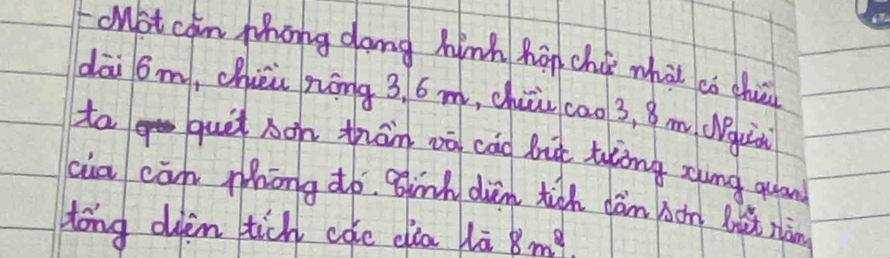 - Một căn phòng dạng hình hộp chữ nhật có chiều
dài 6m, chiều rộng 3,6 m, chiều cao 3,8 m. Người
ta quét sơn trần và các bức tường xung quanh
của căn phòng đó. Tính diện tích cần sơn biết rằng
tổng diện tích các cửa là 8m²